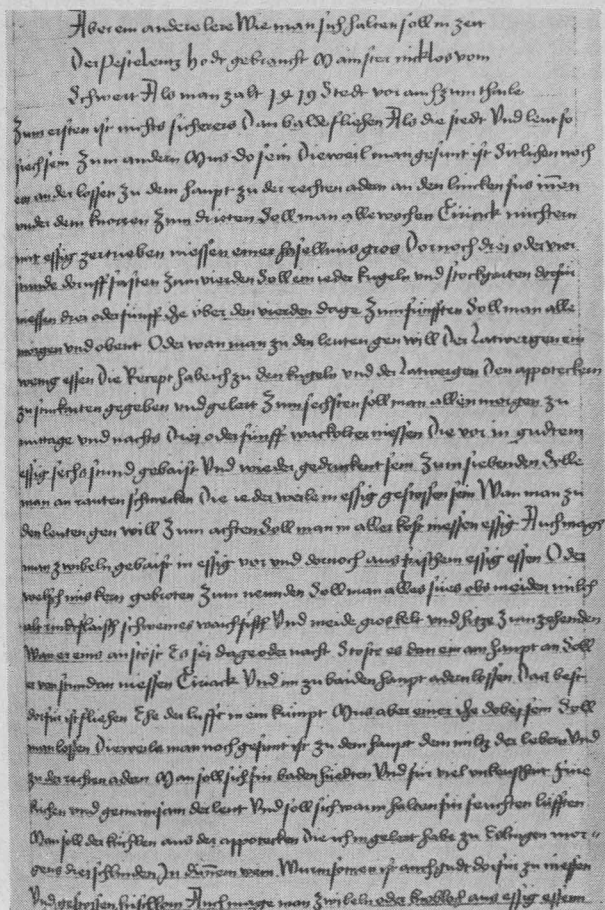 Aber ein andere lere Wie man sich halten soll in zeit
Der pestelentz Hodt gebraucht Mainster nicklos vom
Schwert Als man zalt 1419 Stedt vor auch zum theile
Zum ersten ist nichts sicherers Dan balde fliehen Als die stedt Und leut so
siech sein Zum andern Mus do sein Dieweil man gesunt ist Ditlichen noch
ein ander lossen Zu dem haupt zu der rechten adern an den lincken fus innen
under dem knorren Zum dritten Soll man alle wochen Tiriack nuchtern
mit essig zertrieben niessen einer haselnus gros Dornoch drei oder vier
stunde doruff fasten Zum vierden Soll ein ieder kugeln und dorfur
niessen drei oder funff ihe uber den vierden dage Zum funfften Soll man alle
morgen und obent Oder wan man zu den leuten gen will Der Latwergen ein
wenig essen Die Recept habe ich zu den kugeln und der Latwergen Den appoteckern
zu gegeben und gelert Zum sechsten soll man allen morgen zu
mittage und nachts Drei oder funff wackolter niessen Die vor in gudtem
essig sechs stund gebaist Und wieder gedruckent sein Zum siebenden Solle
man an rauten schmecken Die ie der weile in essig gestossen sein Wan man zu
den leuten gen will Zum achten Soll man in aller kost niessen essig Auch mag
man zwibeln gebaist in essig vor und dornoch aus frischem essig essen Oder
welsch nus kern gebroten Zum neunden Soll man alles sues obs meiden milch
alt rindtflaisch schweines waichfisch Und meide gros kelt und hitze Zum zehenden
Wan er eins anstost Es sei dage oder nacht Stost es dan ein am haupt an Soll
er von stundan niessen Tiriack Und im zu baiden haupt adern lossen Das best
dorfur ist fliehen Ehe der lufft in ein kumpt Mus aber einer ihe dobei sein Soll
man lossen Dieweile man noch gesunt ist zu dem haupt dem miltz der lebern Und
zu der rechten adern Man soll sich fur baden huedten Und fur viel unkeuscheit
kuchen und gemainsam der leut Und soll sich warm halten fur feuchten lufften
Man soll der kuchlen aus der appotecken Die ich in gelert habe zu Eslingen mor-
gens drei schlinden In dunnem wein Wurmsomen ist auch gudt dorfur zu niessen
Und gestossen Auch mage man zwibeln oder knobloch aus essig essen